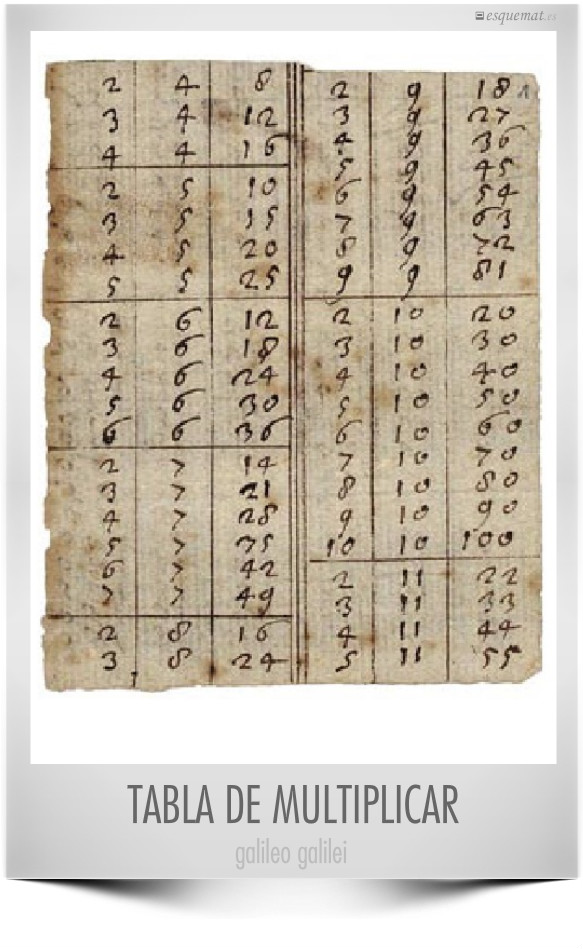 esquemat.es
2 4 8
3 4 12
4 4 16
2 5 10
3 5 15
4 5 20
5 5 25
2 6 12
3 6 18
4 6 24
5 6 30
6 6 36
2 7 14
3 7 21
4 7 28
5 7 35
6 7 42
7 7 49
2 8 16
3 8 24
2 9 18
3 9 27
4 9 36
5 9 45
6 9 54
7 9 63
8 9 72
9 9 81
2 10 20
3 10 30
4 10 40
5 10 50
6 10 60
7 10 70
8 10 80
9 10 90
10 10 100
2 11 22
3 11 33
4 11 44
5 11 55
TABLA DE MULTIPLICAR
galileo galilei